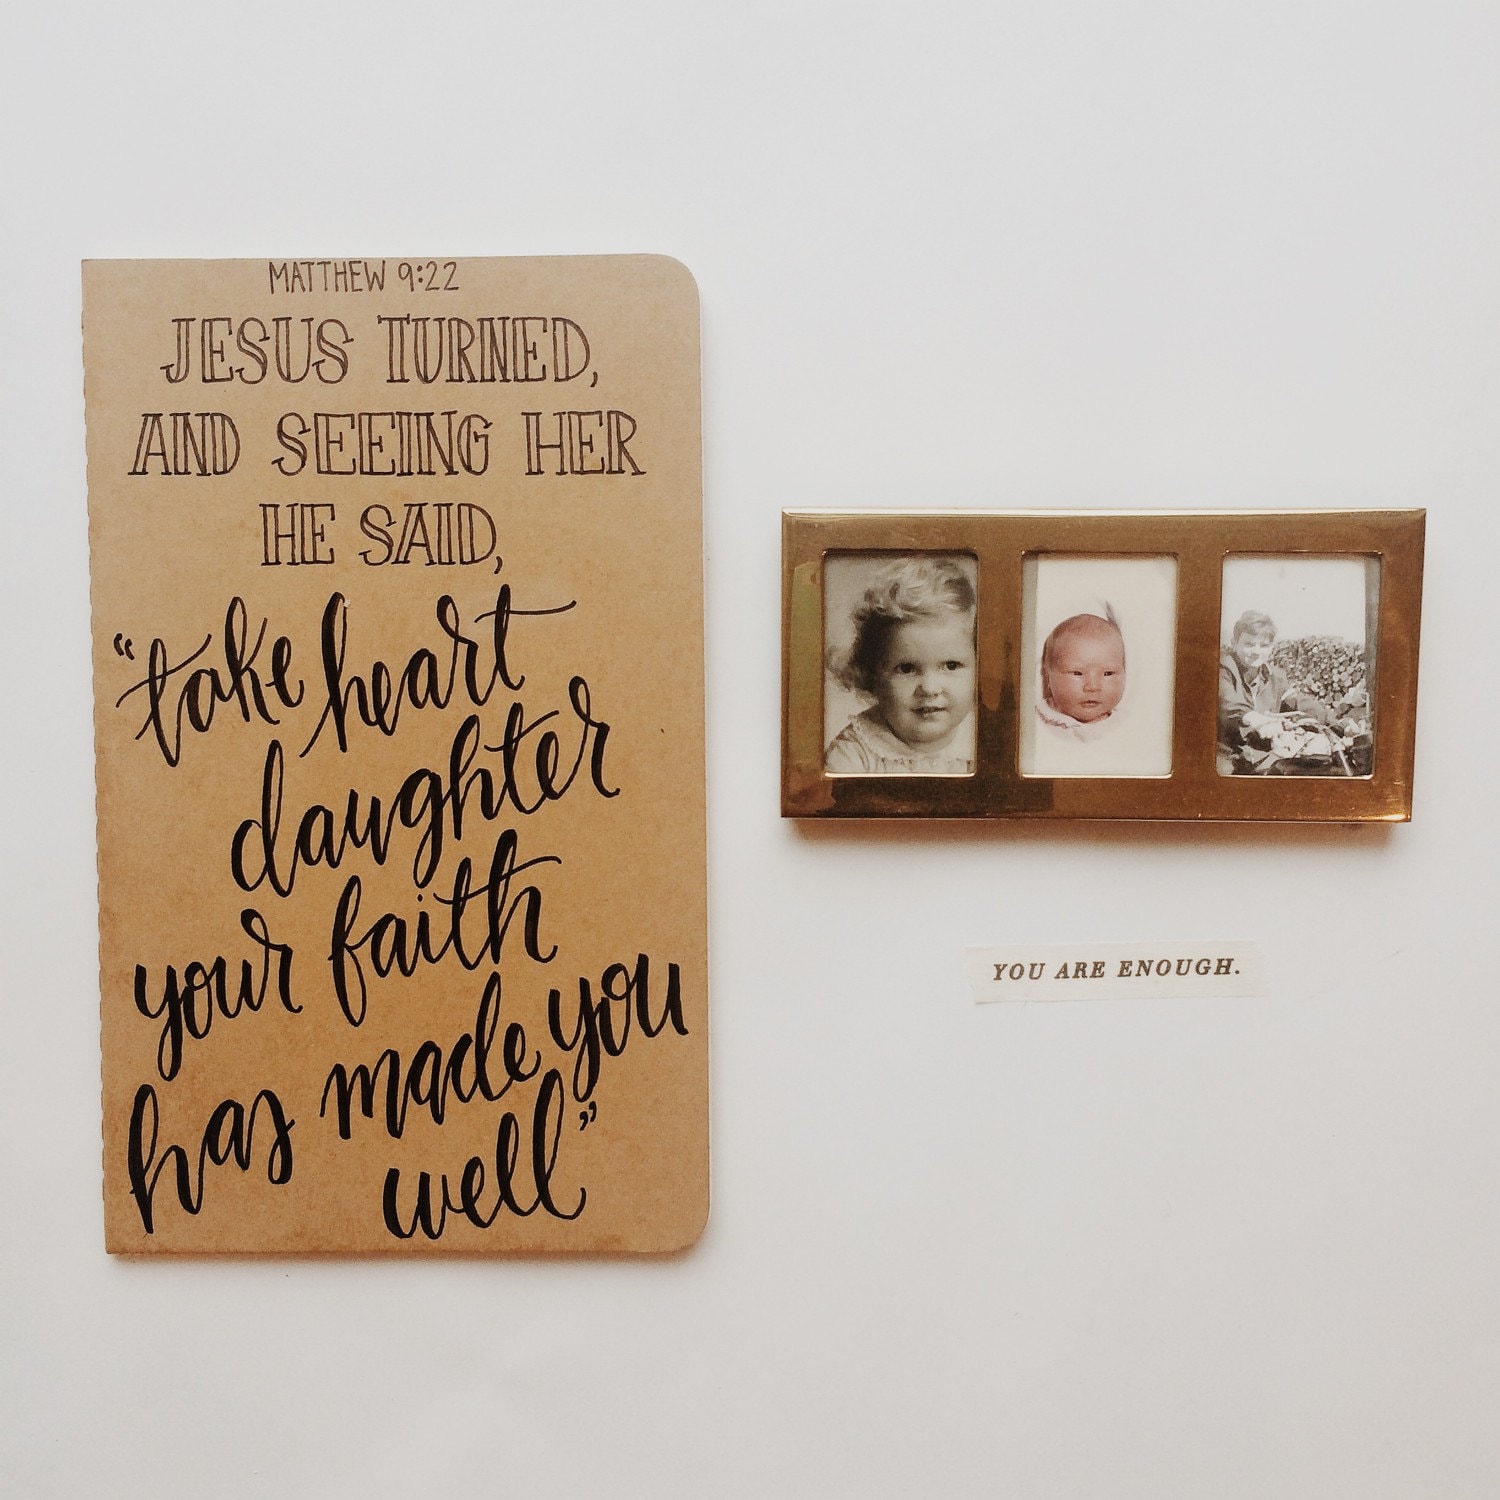 MATTHEW 9:22
JESUS TURNED,
AND SEEING HER
HE SAID,
"take heart
daughter
your faith
has made you
well"
YOU ARE ENOUGH.